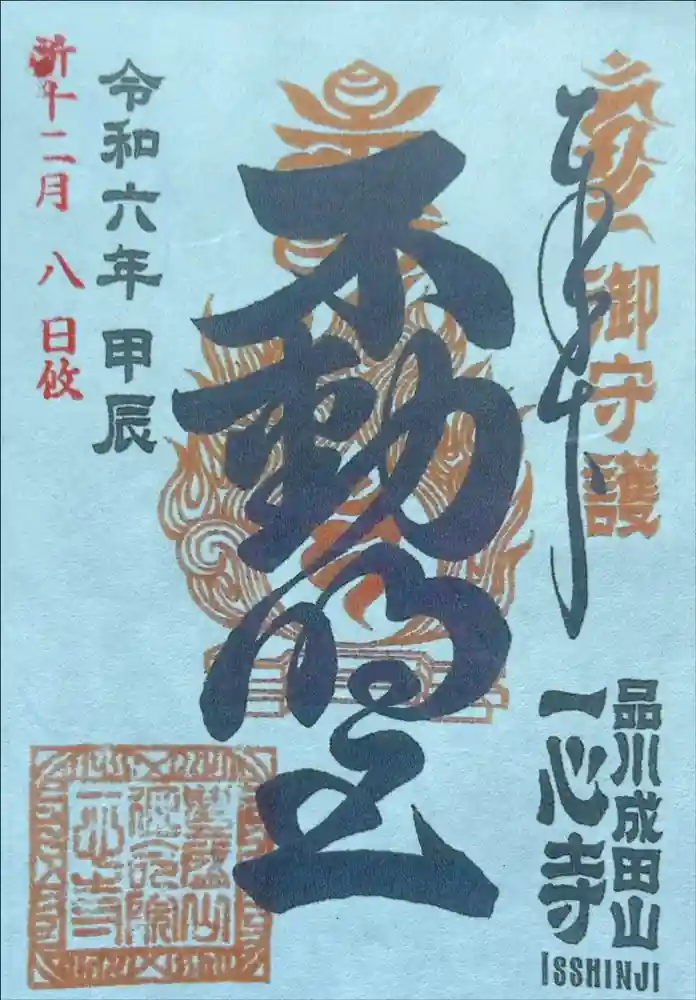 奉拝
御守護
不動明王
令和六年 甲辰
十二月 八 日
品川成田山
一心寺
ISSHINJI
一心寺